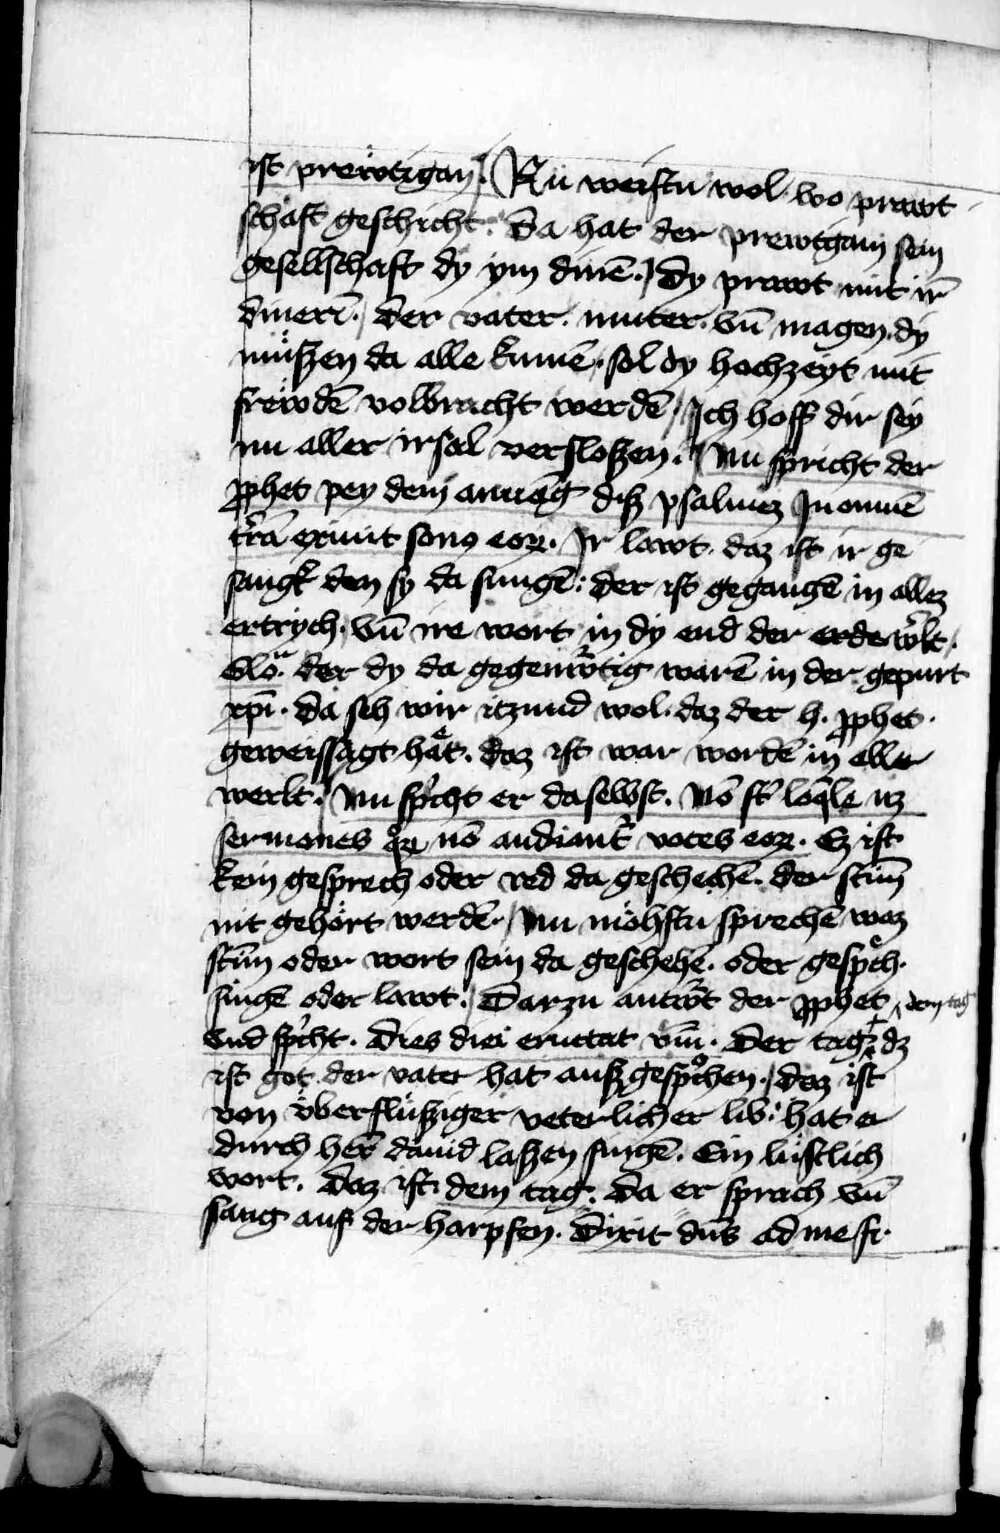 ist prewtigan. Nu weistu wol wo prawt
schaft geschicht. Da hat der prewtgam sein
gesellschaft dy ym dinē. dy prawt mit ir̄
dinerī. der vater. muter. vn̄ magen. dy
müszen da alle kumē. sol dy hochzeyt mit
frewdē volbracht werdē. Ich hoff dir sey
nu aller irsal verslossen. Nu spricht der
ꝓphet pey dem anuāg disz psalmez Jn omnē
tr̄ā exiuit sonꝯ eoꝝ. Jr lawt. daz ist ir ge
sangk den sy da sungē: der ist gegangē in allez
ertrych. vn̄ ire wort in dy end der erde w̄lt.
Glo.ᵃ der dy da gegenw̄tig warē in der gepurt
xp̄i. da seh wir itzund wol. daz der h. ꝓphet.
geweissagt hat. daz ist war wordē in aller
werlt. Nu spͥcht er daselbst. Nō st̄ loq̄le nz
sermones qͦꝝ nō audiant̄ voces eoꝝ. Ez ist
kein gesprech oder red da geschechē. der stim̄
nit gehört werdē. Nu möhstu sprechē waz
stim̄ oder wort sein da geschehē. oder gesp̄ch.
singē oder lawt. Darzu antw̄t der ꝓphet dem tag
vnd spͥcht. Dies diei eructat v̄m̄. Der tag dz
ist got der vater hat ausz gespͦchen. daz ist
von vberflüsziger veterlicher lib. hat er
durch her̄ dauid lassen singē. Ein lustlich
wort. daz ist dem tag. da er sprach vn̄
sang auf der harpfen. Dixit dn̄s ad me fi.